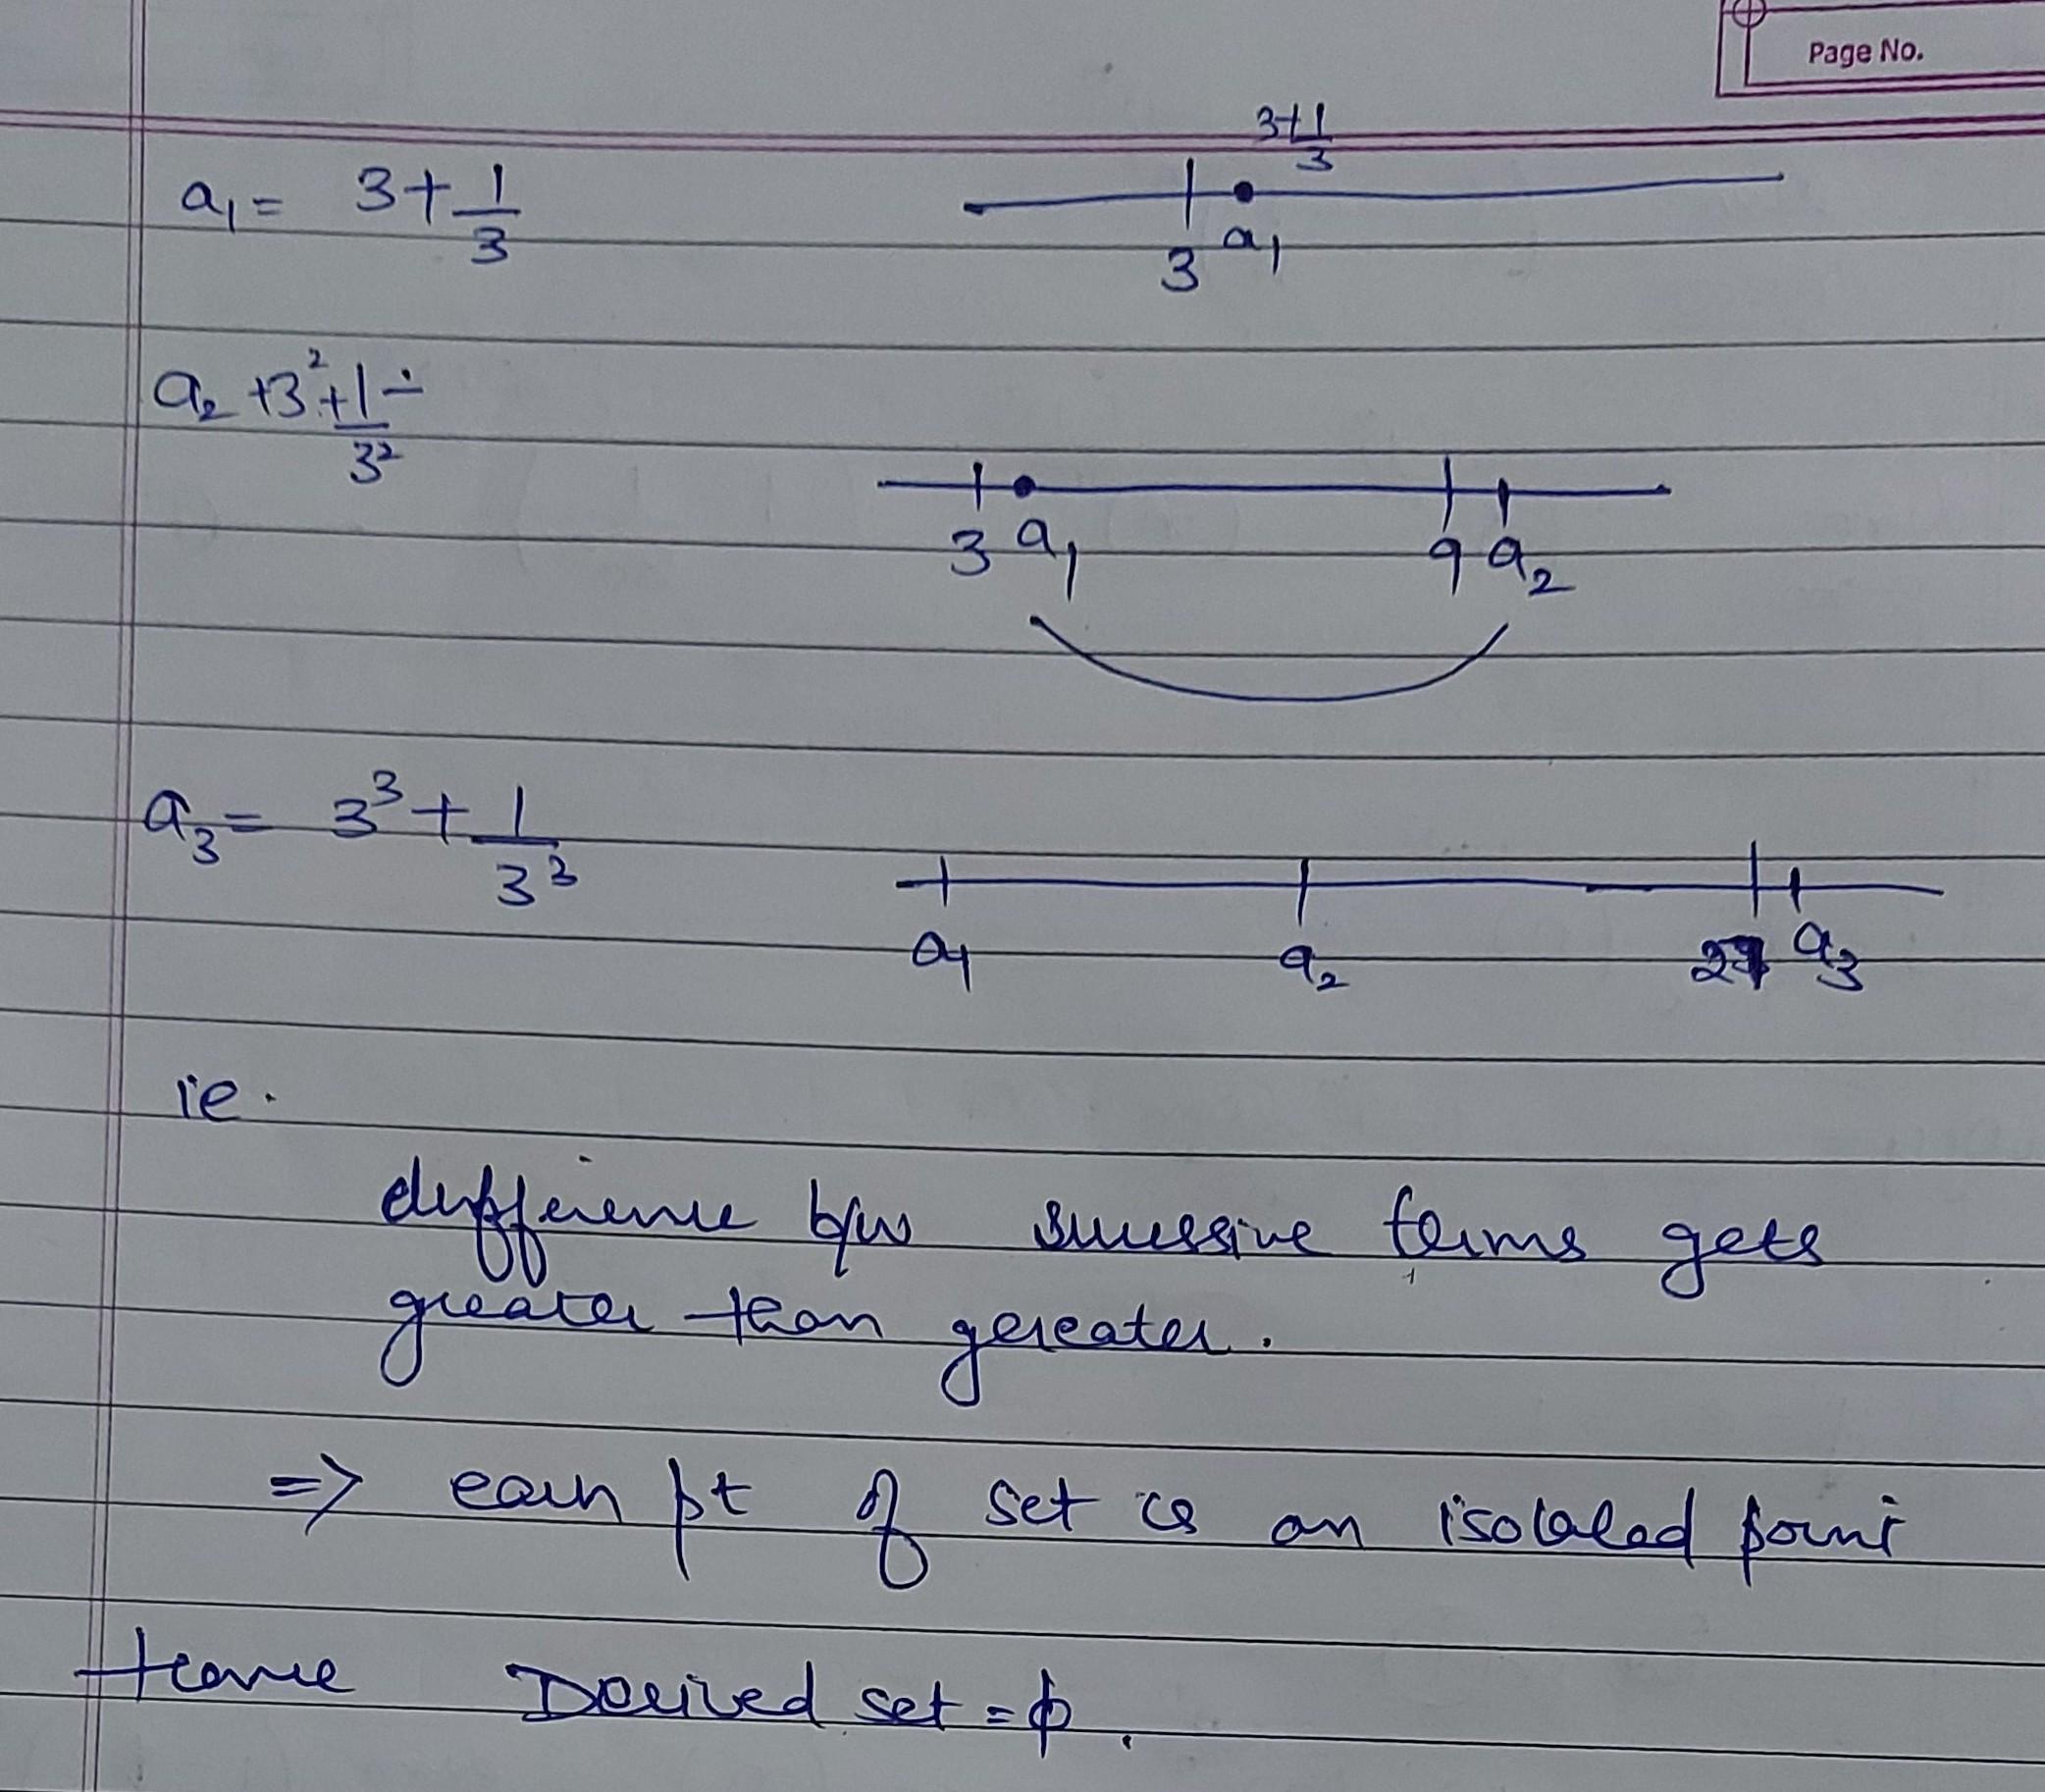 Page No.
a₁ = 3 + 1/3
3+1/3
3 a₁
a₂ + 3² + 1/3²
3 a₁ 9 a₂
a₃ = 3³ + 1/3³
a₁ a₂ 27 a₃
ie.
difference b/w successive terms gets
greater than gereater.
=> each pt of set is an isolated point
Hence Derived set = ϕ.